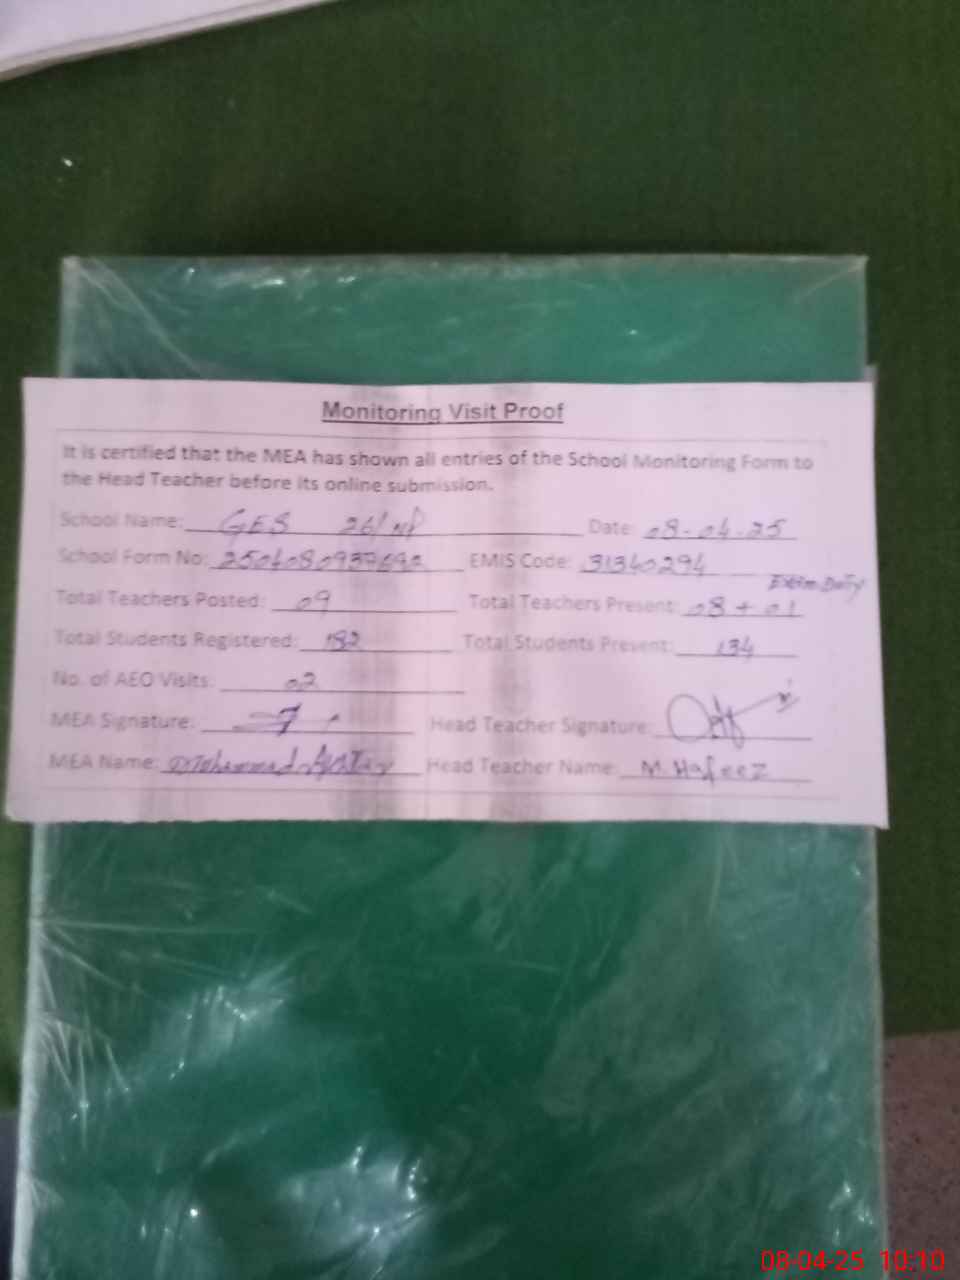 Monitoring Visit Proof
It is certified that the MEA has shown all entries of the School Monitoring Form to
the Head Teacher before its online submission.
School Name: GES 26/NP Date: 08-04-25
School Form No: EMIS Code: 31340294
Exam Duty
Total Teachers Posted: 09 Total Teachers Present: 08 + 01
Total Students Registered: 182 Total Students Present: 134
No. of AEO Visits: 02
MEA Signature: Head Teacher Signature:
MEA Name: Mohammad Head Teacher Name: M. Hafeez
08-04-25 10:10